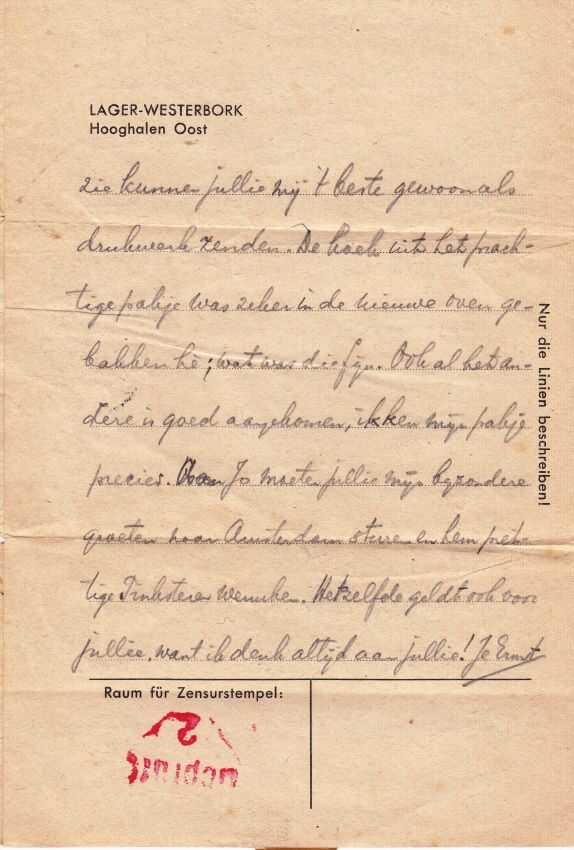 LAGER-WESTERBORK
Hooghalen Oost
die kunnen jullie mij 't beste gewoon als
drukwerk zenden. De koek uit het prach-
tige pakje was zeker in de nieuwe oven ge-
bakken hè; wat was die fijn. Ook al het an-
dere is goed aangekomen, ik ken mijn pakje
precies. Jo moeten jullie mijn byzondere
groeten naar Amsterdam sturen en hem pret-
tige Pinksteren wenschen. Hetzelfde geldt ook voor
jullie, want ik denk altijd aan jullie! Je Ernst
Nur die Linien beschreiben!
Raum für Zensurstempel:
2